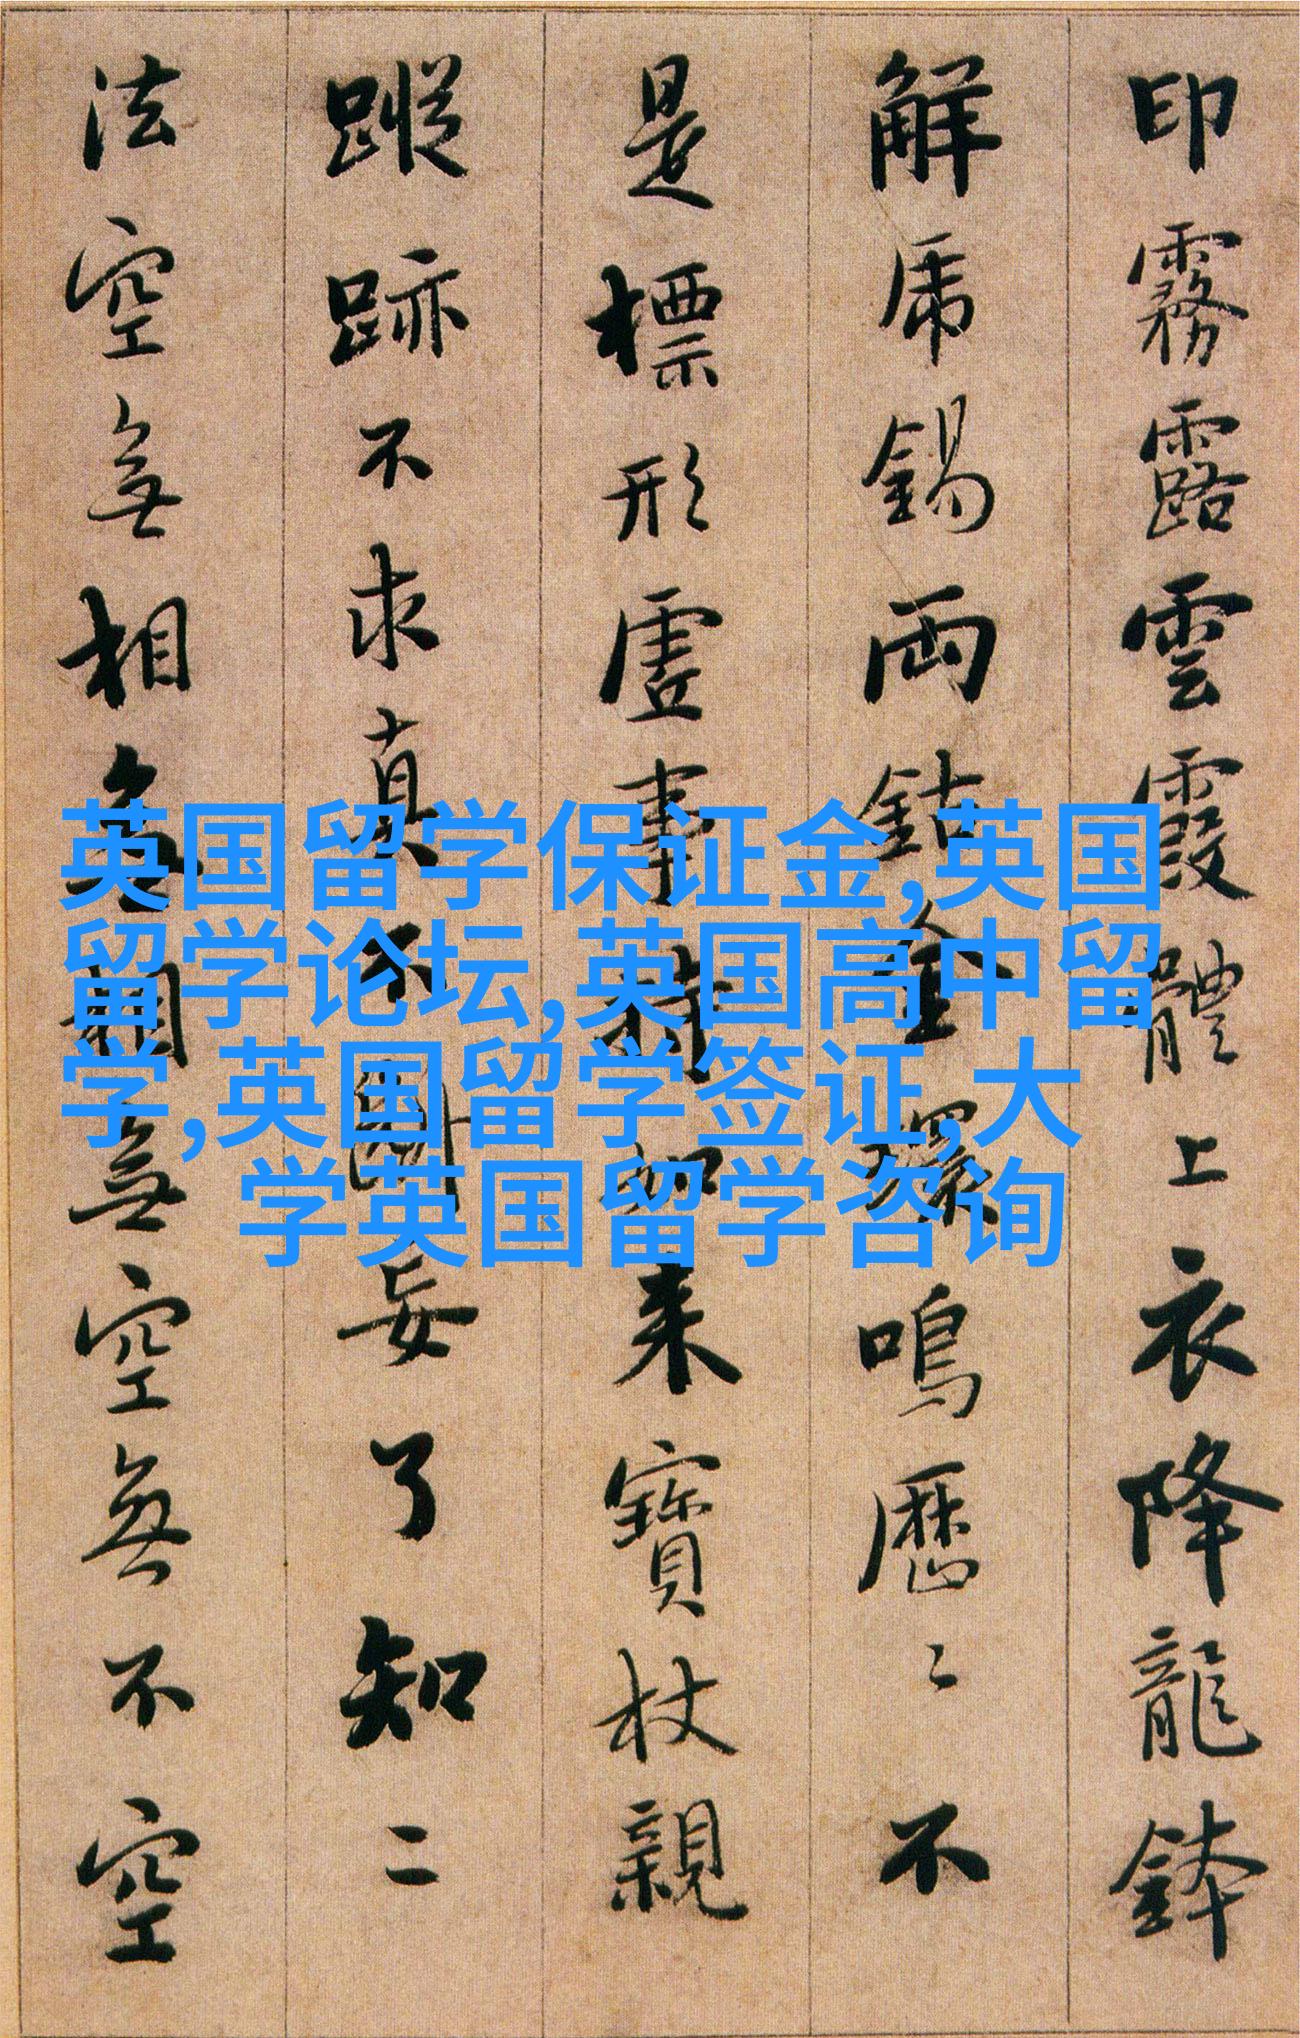 印霧露雲霞體上衣降龍鉢
解虎錫兩鈷金環鳴歷〻不
是標形虛事持如來寶杖親
蹤跡不求真不斷妄了知二
法空無相無相無空無不空
英国留学保证金,英国
留学论坛,英国高中留
学,英国留学签证,大
学英国留学咨询